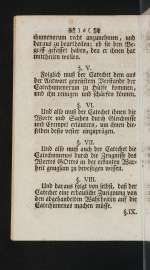 chumenorum recht anzunehmen, und
daraus zu beurtheilen: ob sie den Be-
griff gefasset haben, den er ihnen hat
mittheilen wollen.
§. V.
Folglich muß der Catechet dem aus
der Antwort gemerkten Verstande der
Catechumenorum zu Hülfe kommen,
und ihn reinigen und schärfen können.
§. VI.
Und also muß der Catechet ihnen die
Worte und Sachen durch Gleichnisse
und Exempel erläutern, um ihnen die-
selben desto vester einzuprägen.
§. VII.
Und also muß auch der Catechet die
Catechumenos durch die Zeugnisse des
Wortes Gottes in der erkanten Wahr-
heit gnugsam zu bevestigen wissen.
§. VIII.
Und daraus folgt von selbst, daß der
Catechet eine erbauliche Zueignung von
den abgehandelten Wahrheiten auf die
Catechumenos machen müsse.
§. IX.